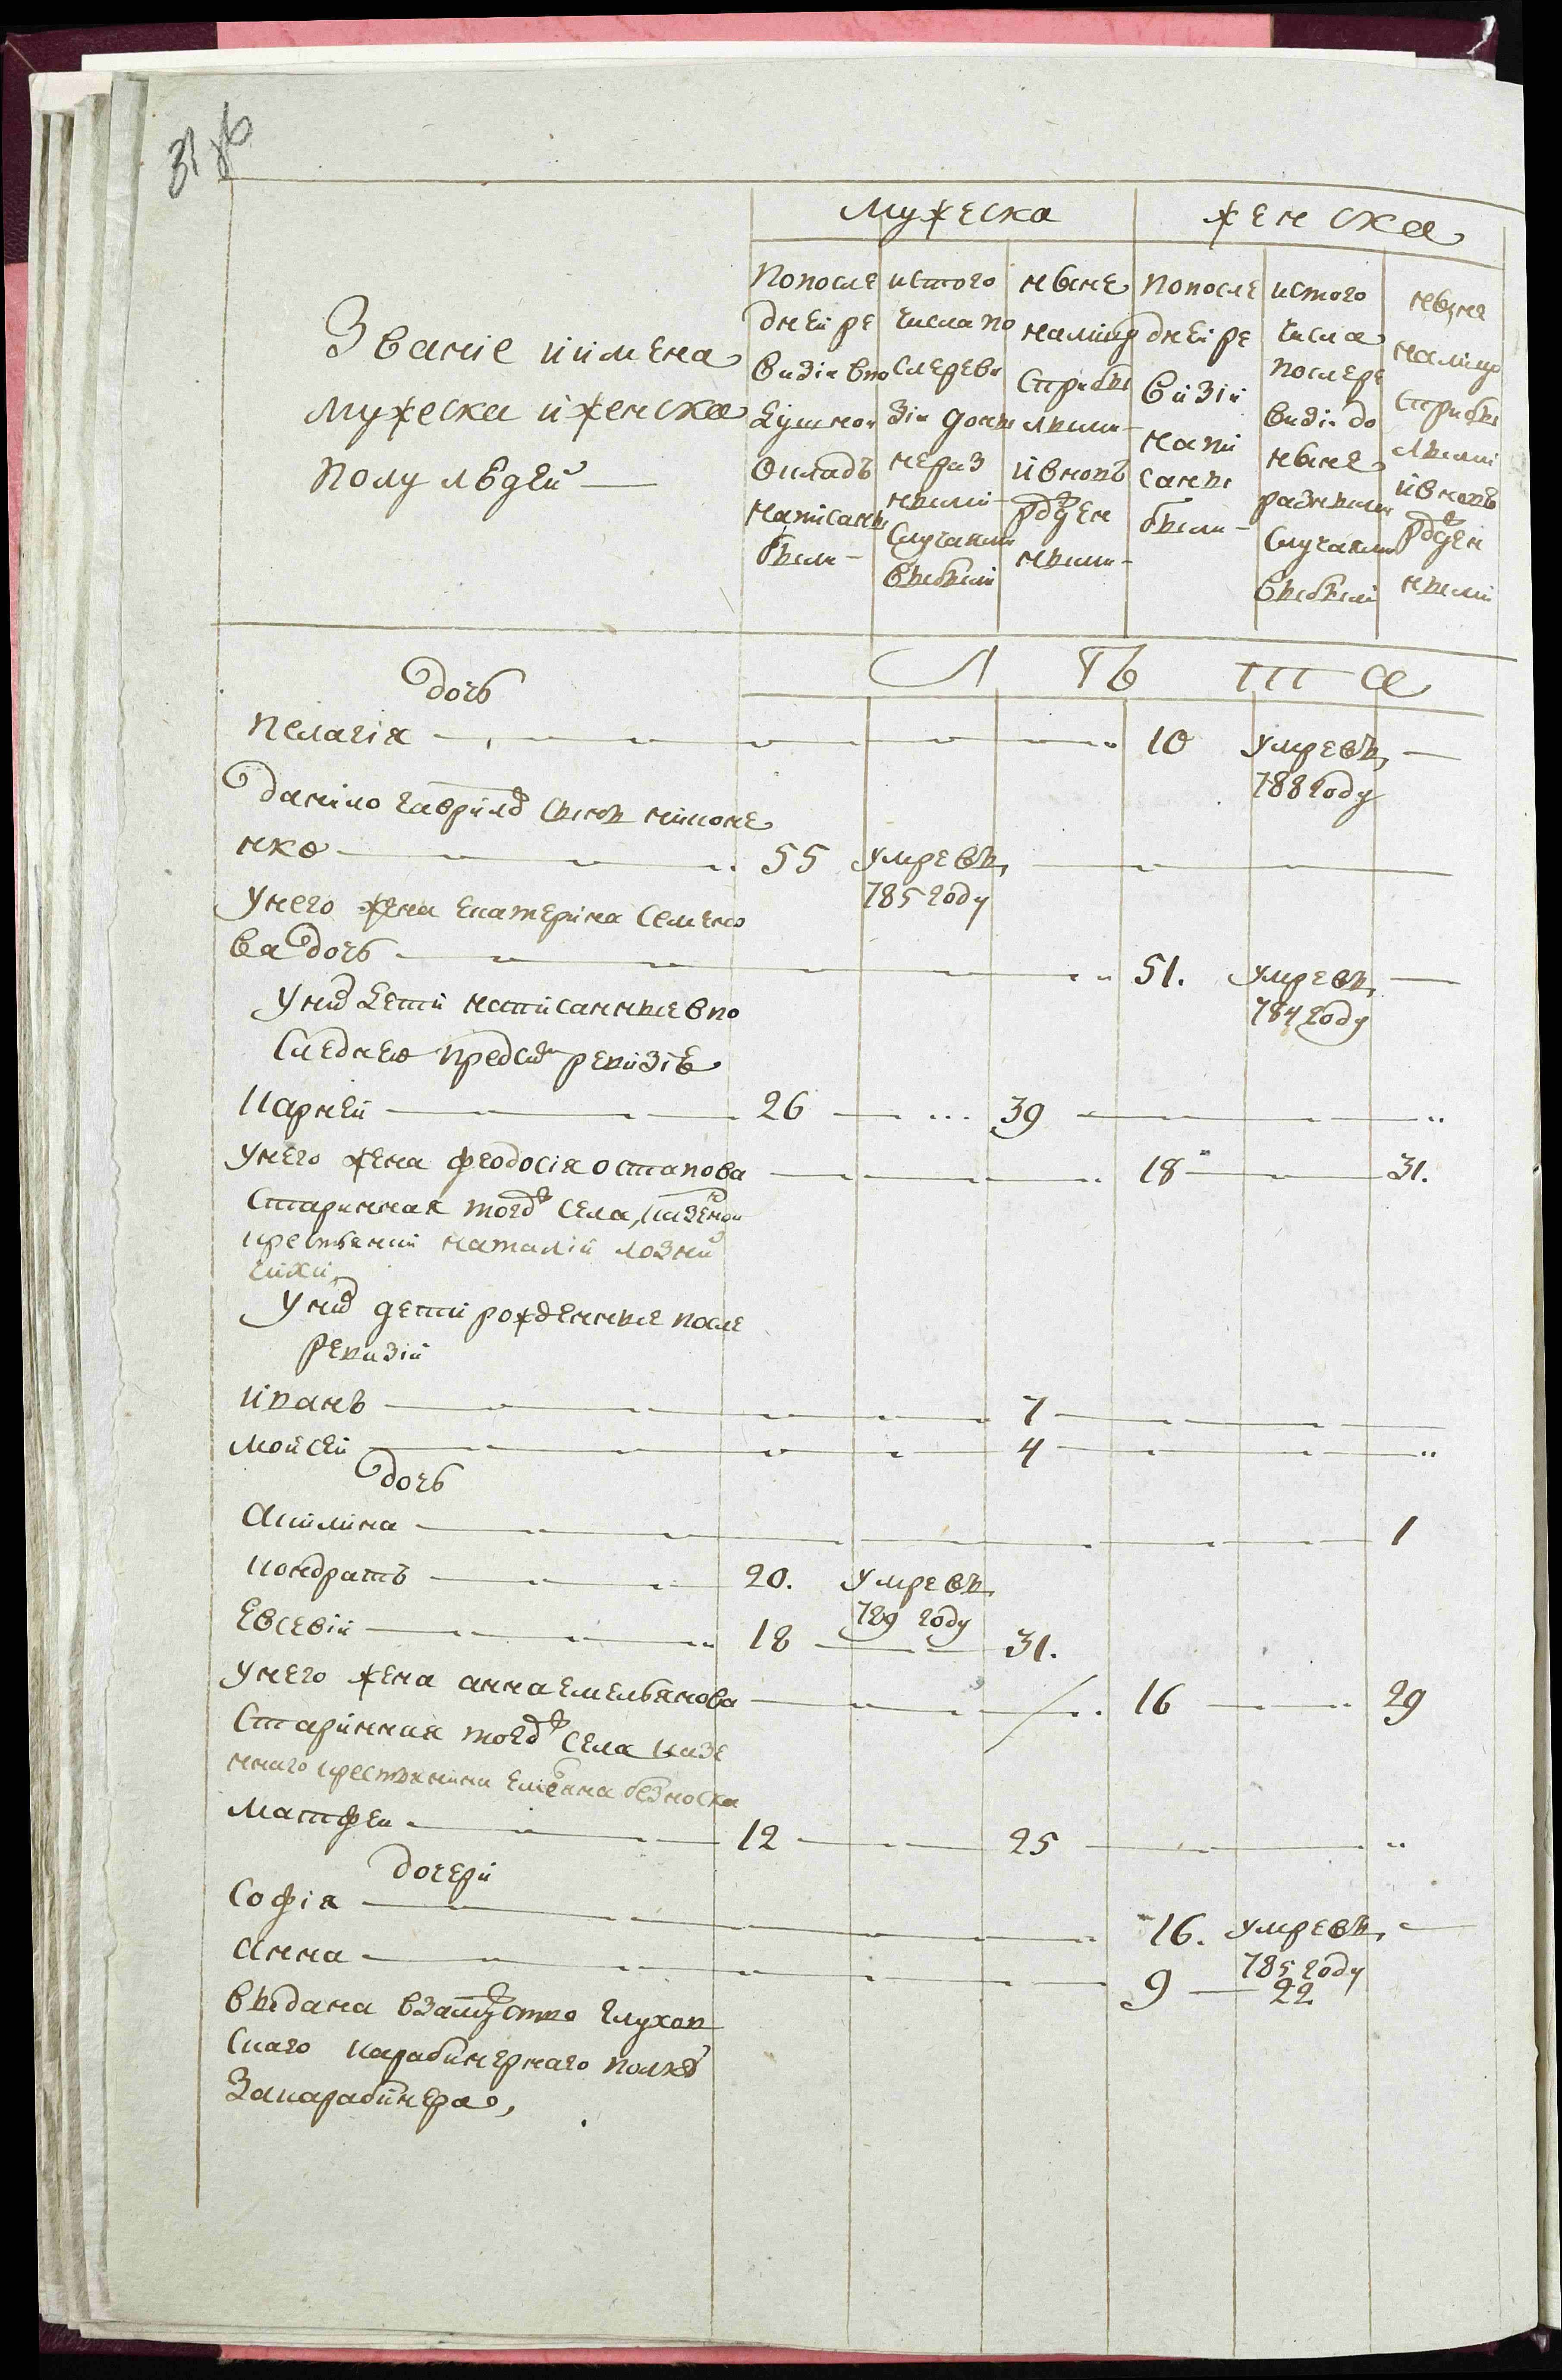 Мужеска
женска
Званіе и имена
мужеска и женска
полу людей —
По после
дней ре
визіи в по
душной
окладъ
написаны
были —
ис того
числа по
сле реви
зіи до ны
не раз
ными
случаями
выбыли
ныне
на лицо
с прибы
лыми
и вновь
рожден
ными
По после
дней ре
визіи
напи
саны
были —
ис того
числа
после ре
визіи до
ныне
разными
случаями
выбыли
ныне
на лицо
с прибы
лыми
и вновь
рожден
ными
Л Ѣ Т А
дочь
Пелагія — 10 умре въ —
788 году
данило гаврилов сынъ
нко — 55 умре въ —
785 году
У него жена Екатерина Семено
ва дочь — 51. умре въ —
784 году
У них дети написанные в по
следнею пред сим ревизіе
Карней — 26 — 39 —
У него жена феодосія остапова — 18 — 31.
Старинная тогож села, казеной
крестянки наталіи лозни
чихи
У них дети рожденные после
ревизіи
Иванъ — 7 —
Мойсей — 4 —
дочь
Акилина — 1
Кондратъ — 20. умре въ
789 году
Евсевій — 18 — 31.
У него жена анна Емельянова — 16 — 29
Старинная тогож села казе
ннаго крестянина Емеляна безноска
Матфей — 12 — 25 —
дочери
Софія — 16. умре въ —
785 году
Анна — 9 — 22
выдана в замужство глухов
скаго карабинернаго полку
за карабинера,